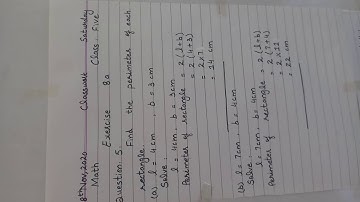 8th Nov, 2020 Classwork Saturday
Math Class Five
Exercise 8a
Question 5. Find the perimeter of each
rectangle.
(a) l = 4cm, b = 3cm
Solve.
l = 4cm, b = 3cm
Perimeter of rectangle = 2(l+b)
= 2(4+3)
= 2×7
= 14 cm
(b) l = 7cm, b = 4cm
Solve.
l = 7cm, b = 4cm
Perimeter of rectangle = 2(l+b)
= 2(7+4)
= 2×11
= 22 cm